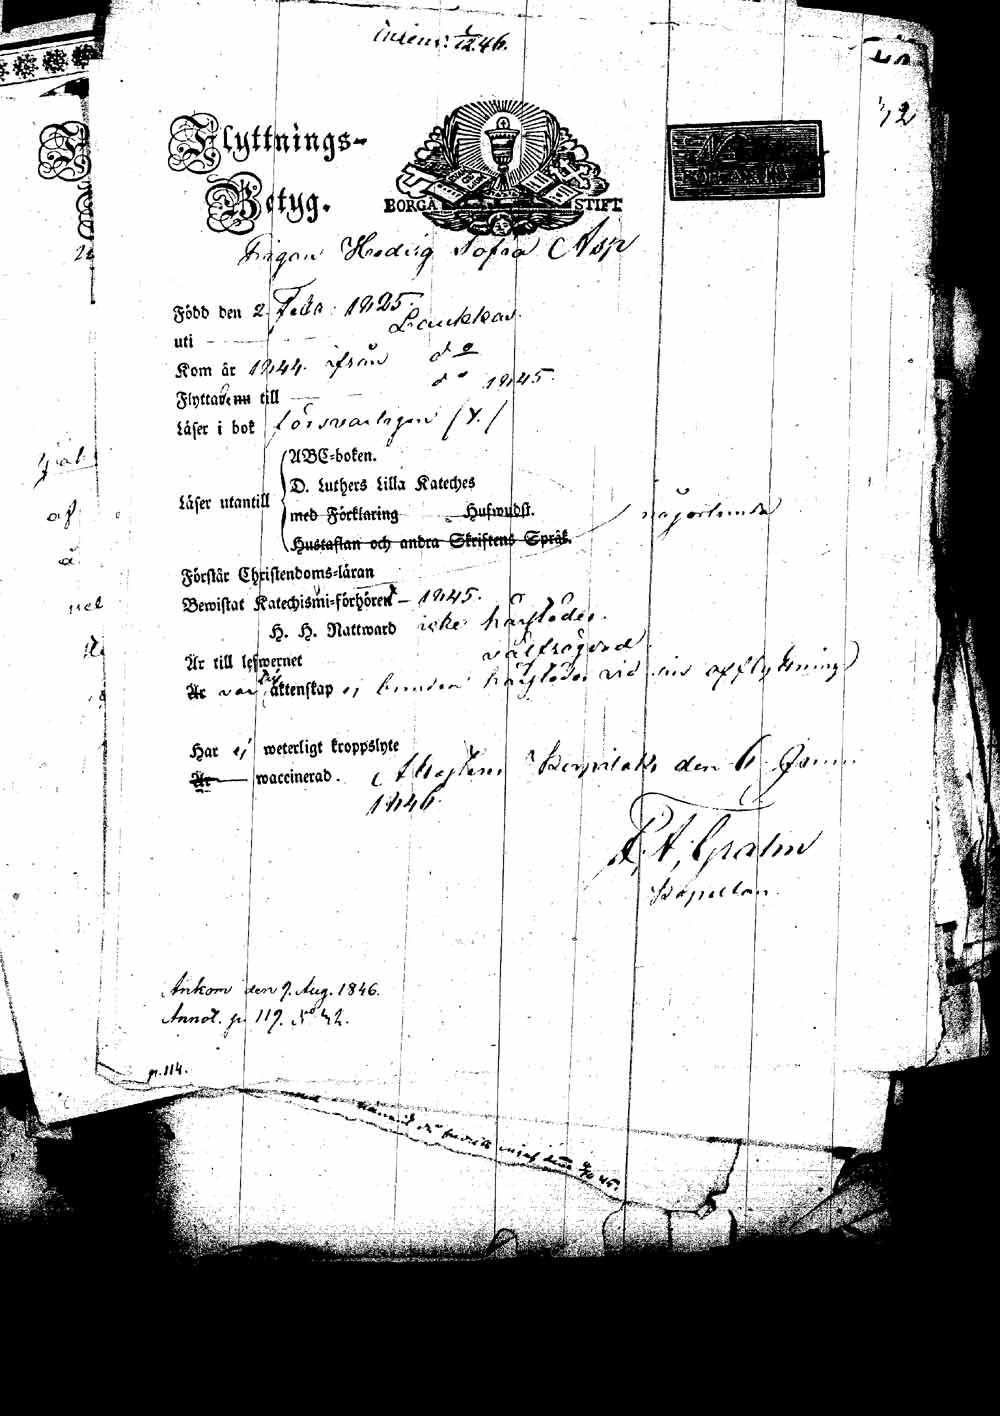 1/12 46.
42
Flyttnings-
Betyg.
BORGÅ STIFT
Pigan Hedvig Sofia Asp
Född den 2 Febr. 1825.
uti Laukkas.
Kom år 1844. ifrån do
Flyttade till do 1845.
Läser i bok försvarligen
Läser utantill
ABC-boken.
D. Luthers Lilla Kateches
med Förklaring Hufwudst.
Hustaflan och andra Skriftens Språk.
någorlunda
Förstår Christendoms-läran
Bewistat Katechismi-förhören 1845.
H. H. Nattward icke härstädes.
Är till lefwernet välfrägdad
Är äktenskap ej bunden härstädes vid sin afflyttning
Har ej weterligt kroppslyte
Är waccinerad. den 6 Juni
1846.
Kapellan.
Ankom den 9. Aug. 1846.
Annot. p. 119. No 42.
p. 114.